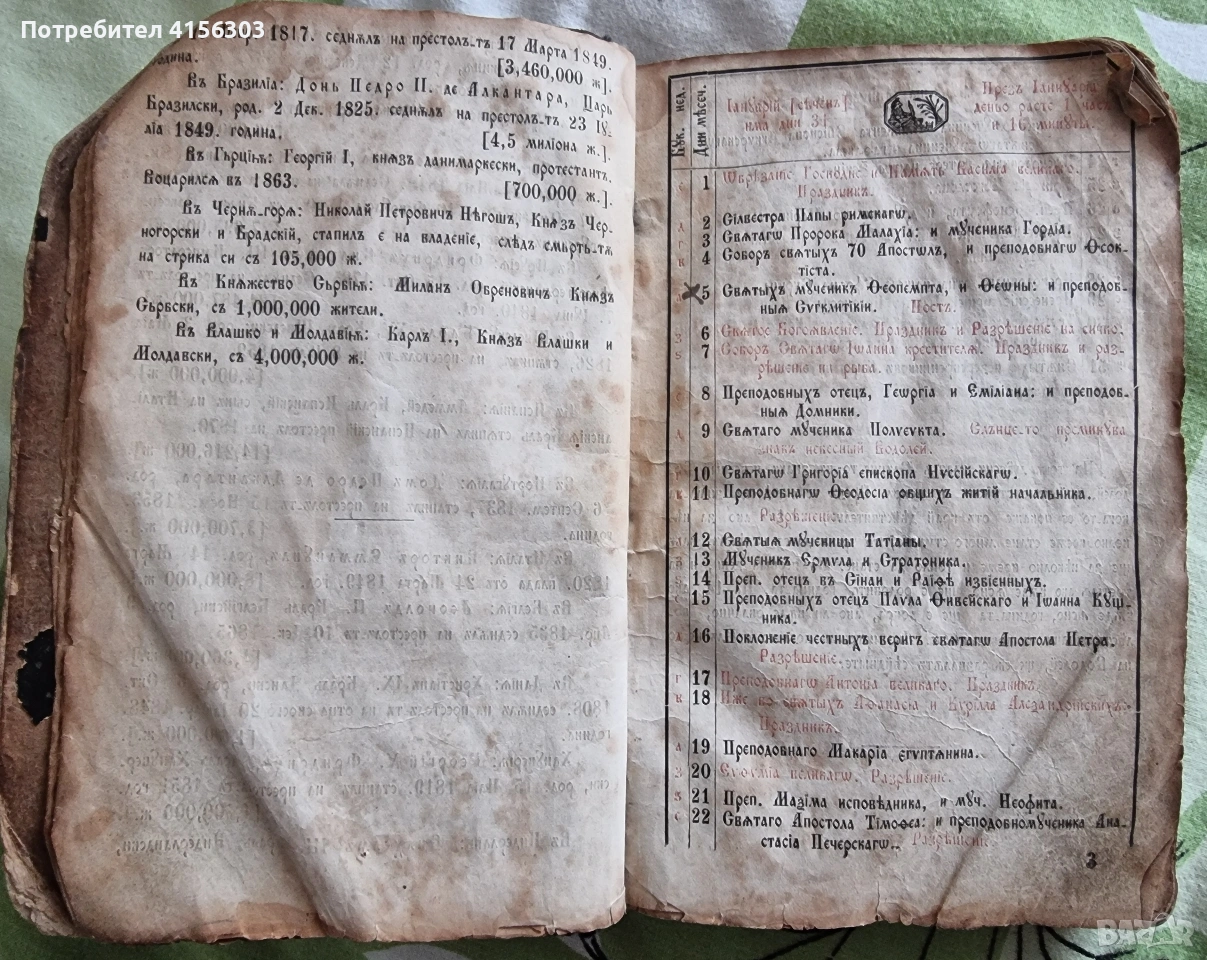 Потребител 4156303
1817. седнѫлъ на престолъ-тъ 17 Марта 1849.
година. [3,460,000 ж].
Въ Бразилїа: Донъ Педро II. де Алкантара, Царь
Бразилски, род. 2 Дек. 1825. седнѫлъ на престолъ-тъ 23 Іу-
лїа 1849. година. [4,5 милїона ж.].
Въ Гърцїѭ: Георгїй I, кнѧзъ данимаркески, протестантъ.
Воцарилсѧ въ 1863. [700,000 ж.].
Въ Чернѫ-горѫ: Николай Петровичъ Нѣгошъ, Кнѧзъ Чер-
ногорски и Брадскїй, стапилъ є на владенїе, слѣдъ смьрть-тѫ
на стрика си съ 105,000 ж.
Въ Кнѧжество Сърбїѭ: Миланъ Обреновичъ Кнѧзъ
Сърбски, съ 1,000,000 жители.
Въ Влашко и Молдавїѭ: Карлъ I., Кнѧзъ Влашки и
Молдавски, съ 4,000,000 ж.
Бꙋк. нед.
Дни мѣсеч.
Іанꙋарїй [сѣченъ]
има дни 31.
Презъ Іанꙋарїа
деньо расте 1 часъ
и 16 минꙋты.
1 Ѡбрѣзанїе Господне и Памѧть Василїа великаго.
Праздникъ.
2 Сілвестра Папы римскагѡ.
3 Свѧтагѡ Пророка Малахїа: и мꙋченика Гордїа.
4 Соборъ свѧтыхъ 70 Апостѡлъ, и преподобнагѡ Ѳеок-
тїста.
5 Свѧтыхъ мꙋченикъ Ѳеопемпта, и Ѳеѡны: и преподоб-
ныѧ Сѵгклитїкїи. Постъ.
6 Свѧтое Богоѧвленїе. Праздникъ и Разрѣшенїе на сичко.
7 Соборъ Свѧтагѡ Іѡанна крестителѧ. Праздникъ и раз-
рѣшенїе на рыба.
8 Преподобныхъ отецъ, Геѡргїа и Емілїана: и преподоб-
ныѧ Домники.
9 Свѧтаго мꙋченика Полѵеѵкта. Слънце-то преминꙋва
знакъ небесный Водолей.
10 Свѧтагѡ Григорїа епископа Нѵссїйскагѡ.
11 Преподобнагѡ Ѳеодосїа общихъ житїй началника.
Разрѣшенїе.
12 Свѧтыѧ мꙋченицы Татїаны.
13 Мꙋченикъ Ермѵла и Стратоника.
14 Преп. отецъ въ Сїнаи и Раїѳѣ избїенныхъ.
15 Преподобныхъ отецъ Паѵла Ѳивейскаго и Іѡанна Кꙋщ-
ника.
16 Поклоненїе честныхъ веригъ свѧтагѡ Апостола Петра.
Разрѣшенїе.
17 Преподобнагѡ Антонїа великаго. Праздникъ.
18 Иже во свѧтыхъ Аѳанасїа и Кѵрілла Алеѯандрійскихъ.
Праздникъ.
19 Преподобнаго Макарїа егѵптѧнина.
20 Еѵѳѵмїа великагѡ. Разрѣшенїе.
21 Преп. Маѯїма исповѣдника, и мꙋч. Неофита.
22 Свѧтаго Апостола Тїмоѳеа: и преподобномꙋченика Ана-
стасїа Печерскагѡ. Разрѣшенїе.
3
BAZAR